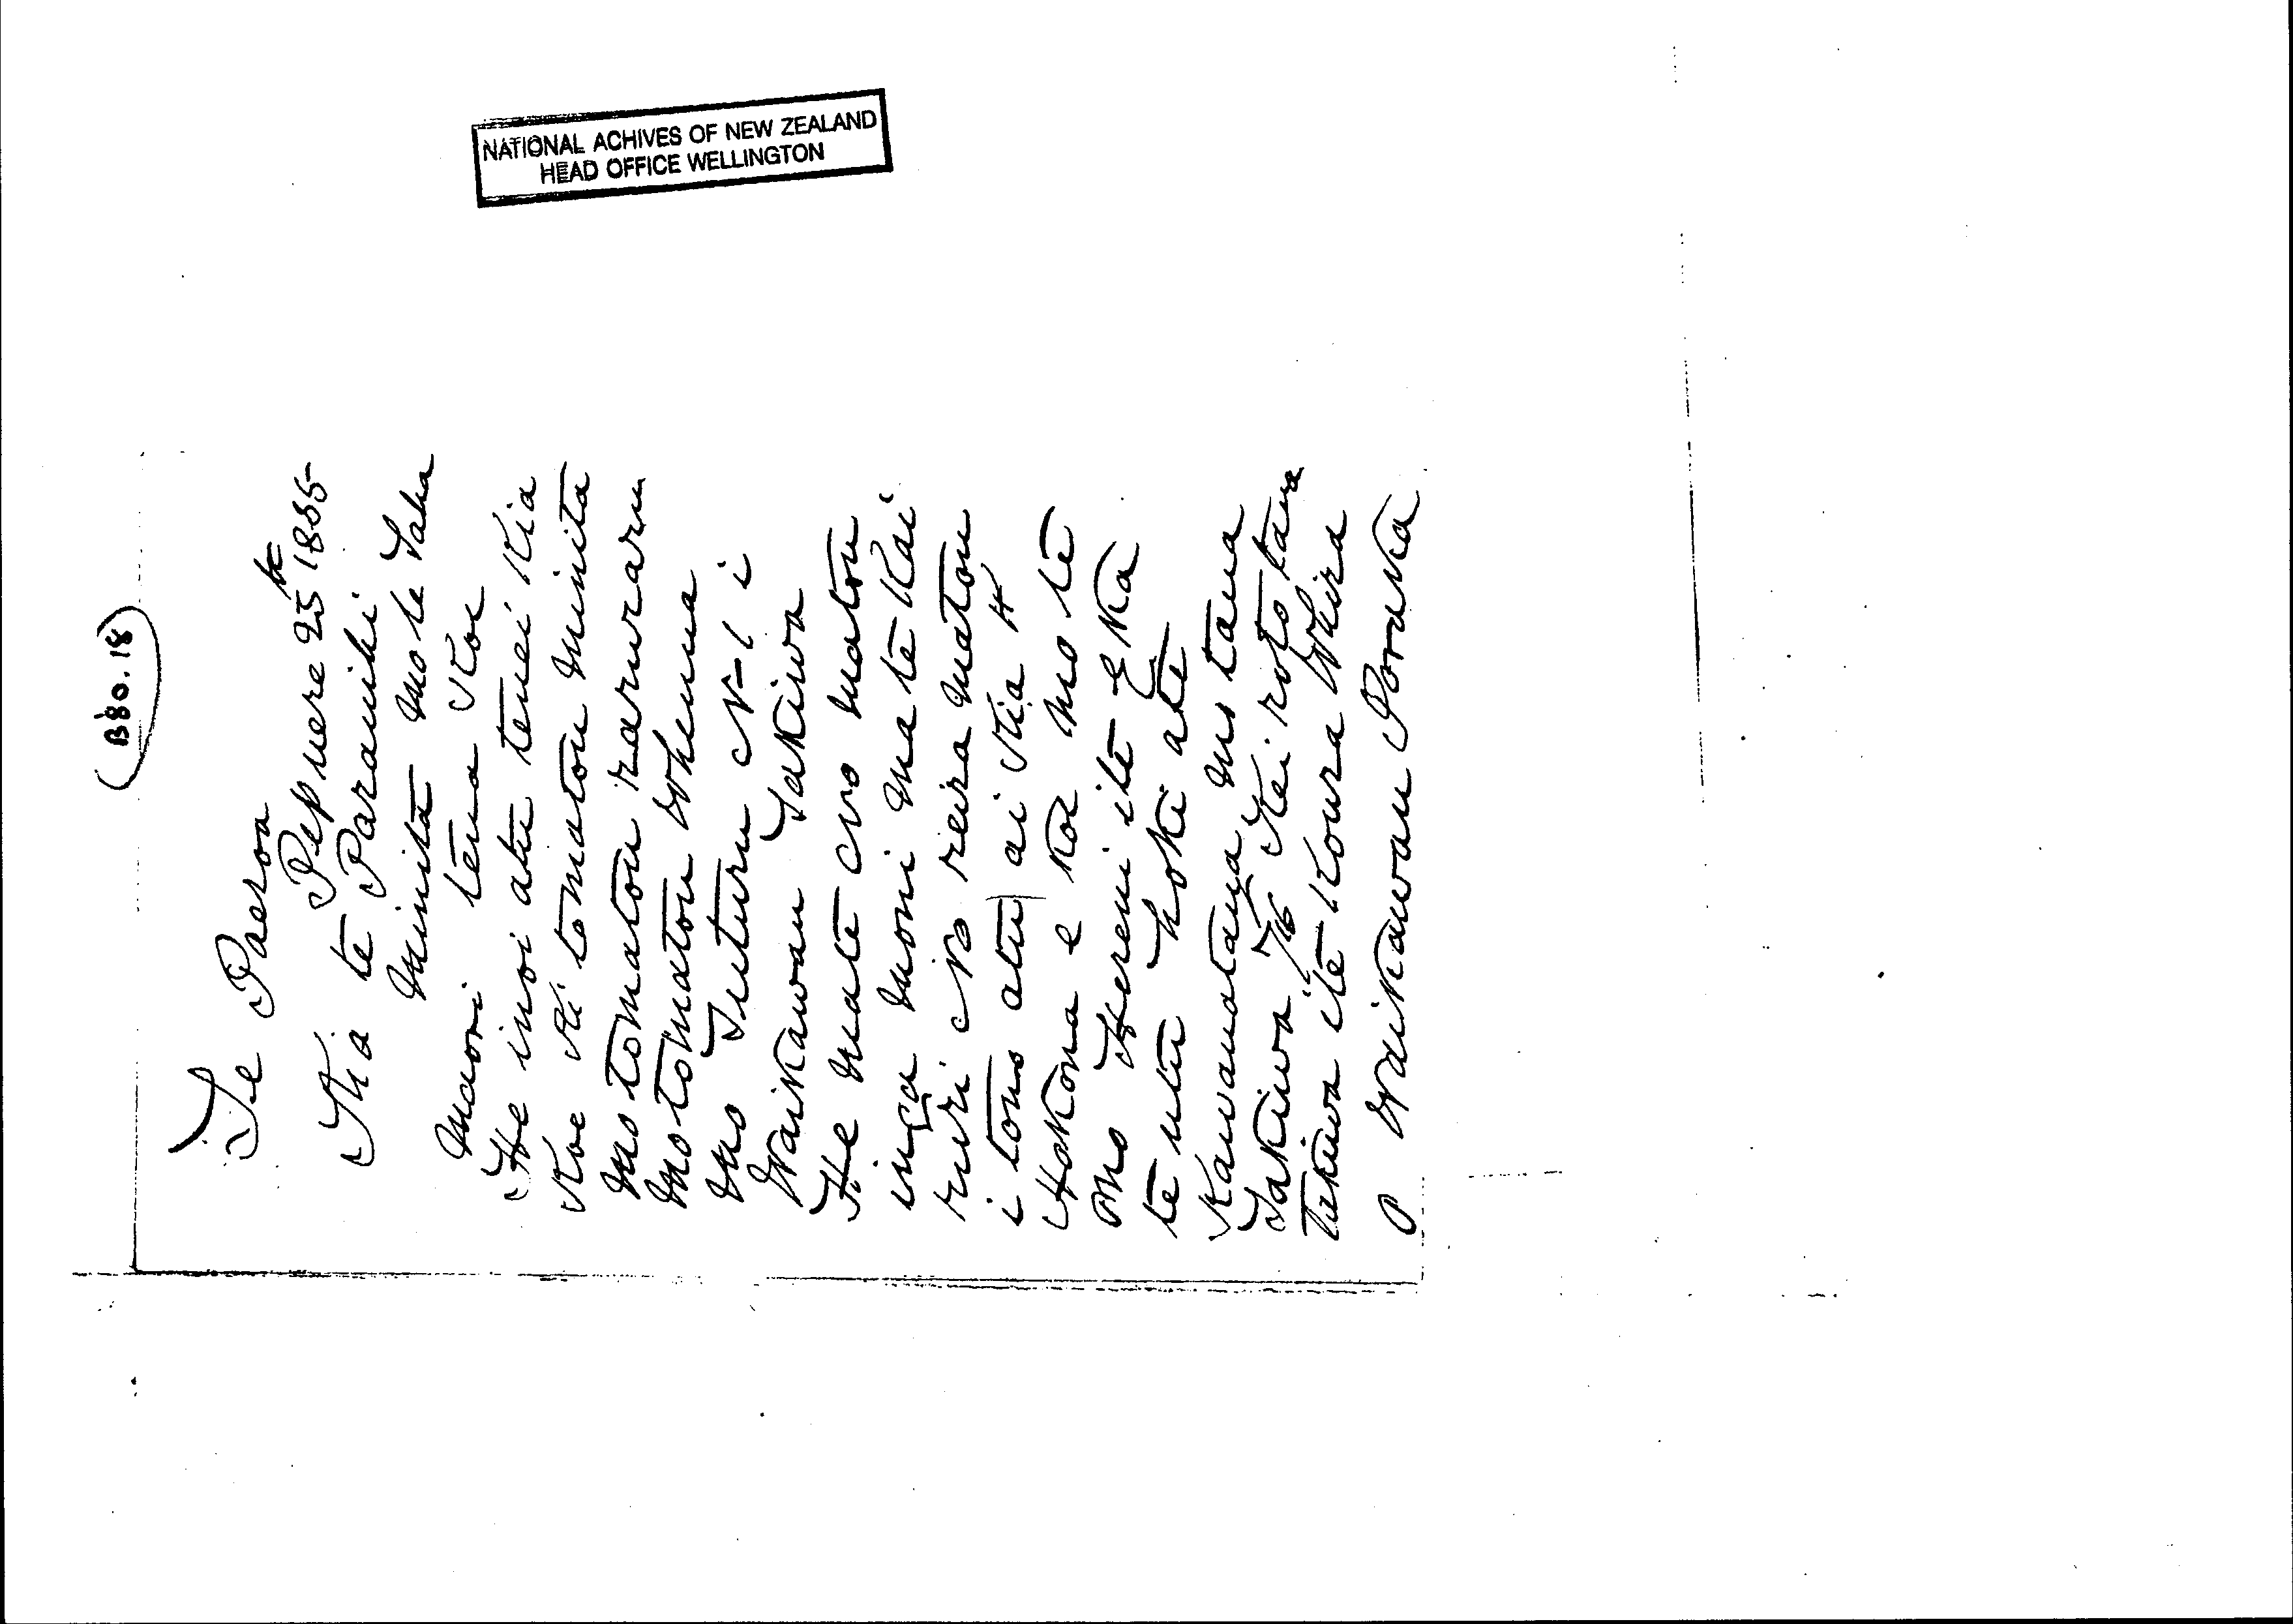 B80.18
NATIONAL ACHIVES OF NEW ZEALAND
HEAD OFFICE WELLINGTON
Te Paeroa
Pepuere 25 1885
Kia te Paranihi
Minita mo te Taha
Maori tena Koe
He inoi atu tenei Kia
Koe Ki to matou Minita
Mo to matou raruraru
Mo to matou Whenua
Mo Tuturu N-1 i
Waikawau Takiwa
He mate no matou
inga moni ma te Kai
ruri No reira matou
i tono atu ai Kia H
Hakona e Koe mo te
Mo Hereni ite Eka
te utu hoki a te
Kawanatanga mo taua
Takiwa Kei roto taua
Takiwa ite Koura Whira
o Waikawau Poraka